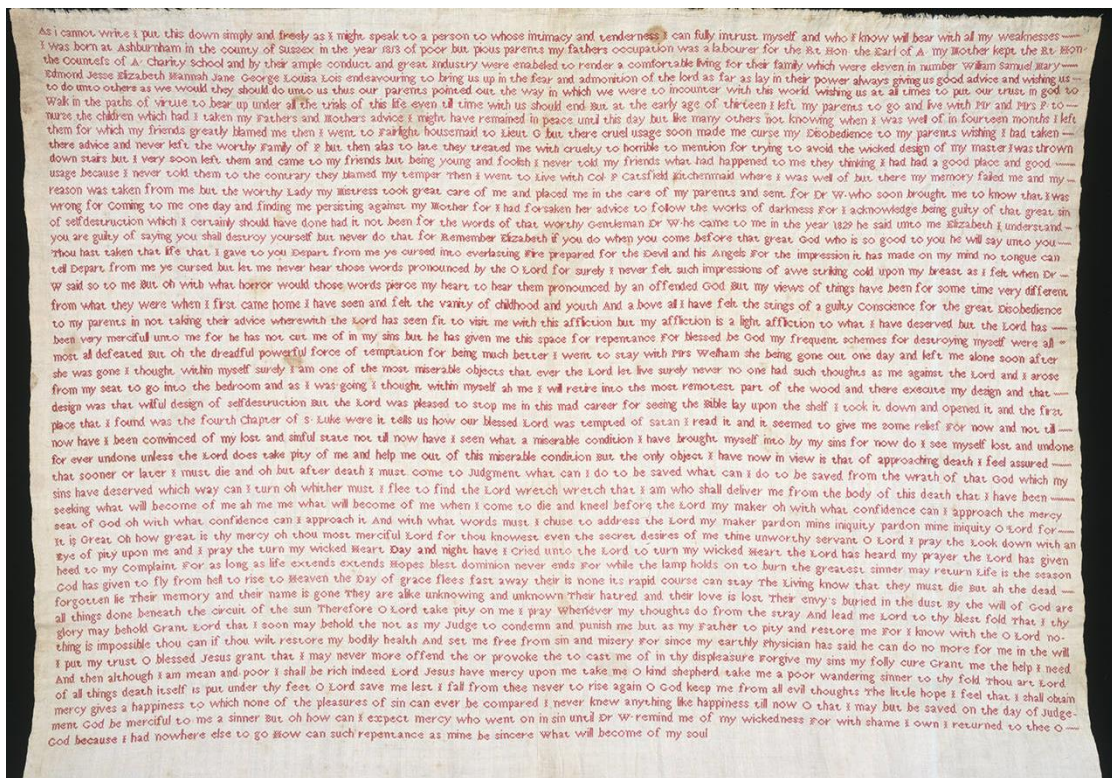 As i cannot write I put this down simply and freely as I might speak to a person to whose intimacy and tenderness I can fully intrust myself and who I know will bear with all my weaknesses
I was born at Ashburnham in the county of Sussex in the year 1813 of poor but pious parents my fathers occupation was a labourer for the Rt Hon the Earl of A my Mother kept the Rt Hon
the Countess of A Charity School and by their ample conduct and great Industry were enabled to render a comfortable living for their family which were eleven in number William Samuel Mary
Edmond Jesse Elizabeth Hannah Jane George Louisa Lois endeavouring to bring us up in the fear and admonition of the lord as far as lay in their power always giving us good advice and wishing us
to do unto others as we would they should do unto us thus our parents pointed out the way in which we were to incounter with this world wishing us at all times to put our trust in god to
Walk in the paths of virtue to bear up under all the trials of this life even till time with us should end But at the early age of thirteen I left my parents to go and live with Mr and Mrs P to
nurse the children which had I taken my Fathers and Mothers advice I might have remained in peace until this day but like many others not knowing when I was well of in fourteen months I left
them for which my friends greatly blamed me then I went to Fairlight housemaid to Lieut G but there cruel usage soon made me curse my Disobedience to my parents wishing I had taken
there advice and never left the worthy Family of P but then alas to late they treated me with cruelty to horrible to mention for trying to avoid the wicked design of my master I was thrown
down stairs but I very soon left them and came to my friends but being young and foolish I never told my friends what had happened to me they thinking I had had a good place and good
usage because I never told them to the contrary they blamed my temper Then I went to Live with Col P Catsfield kitchenmaid where I was well of but there my memory failed me and my
reason was taken from me but the worthy Lady my Mistress took great care of me and placed me in the care of my parents and sent for Dr W who soon brought me to know that I was
wrong for Coming to me one day and finding me persisting against my Mother for I had forsaken her advice to follow the works of darkness For I acknowledge being guilty of that great sin
of selfdestruction which I certainly should have done had it not been for the words of that worthy Gentleman Dr W he came to me in the year 1829 he said unto me Elizabeth I understand
you are guilty of saying you shall destroy yourself but never do that for Remember Elizabeth if you do when you come before that great God who is so good to you he will say unto you
Thou hast taken that life that I gave to you Depart from me ye cursed into everlasting Fire prepared for the Devil and his Angels For the impression it has made on my mind no tongue can
tell Depart from me ye cursed but let me never hear those words pronounced by the O Lord for surely I never felt such impressions of awe striking cold upon my breast as I felt when Dr
W said so to me But oh with what horror would those words pierce my heart to hear them pronounced by an offended God But my views of things have been for some time very different
from what they were when I first came home I have seen and felt the vanity of childhood and youth And a bove all I have felt the stings of a guilty Conscience for the great Disobedience
to my parents in not taking their advice wherewith the Lord has seen fit to visit me with this affliction but my affliction is a light affliction to what I have deserved but the Lord has
been very merciful unto me for he has not cut me of in my sins but he has given me this space for repentance For blessed be God my frequent schemes for destroying myself were all
most all defeated But oh the dreadful powerful force of temptation for being much better I went to stay with Mrs Welham she being gone out one day and left me alone soon after
she was gone I thought within myself surely I am one of the most miserable objects that ever the Lord let live surely never no one had such thoughts as me against the Lord and I arose
from my seat to go into the bedroom and as I was going I thought within myself ah me I will retire into the most remotest part of the wood and there execute my design and that
design was that wilful design of selfdestruction But the Lord was pleased to stop me in this mad career for seeing the Bible lay upon the shelf I took it down and opened it and the first
place that I found was the fourth Chapter of S. Luke were it tells us how our blessed Lord was tempted of satan I read it and it seemed to give me some relief For now and not till
now have I been convinced of my lost and sinful state not till now have I seen what a miserable condition I have brought myself into by my sins for now do I see myself lost and undone
for ever undone unless the Lord does take pity of me and help me out of this miserable condition But the only object I have now in view is that of approaching death I feel assured
that sooner or later I must die and oh but after death I must come to Judgment what can I do to be saved what can I do to be saved from the wrath of that God which my
sins have deserved which way can I turn oh whither must I flee to find the Lord wretch wretch that I am who shall deliver me from the body of this death that I have been
seeking what will become of me ah me me what will become of me when I come to die and kneel before the Lord my maker oh with what confidence can I approach the mercy
seat of God oh with what confidence can I approach it And with what words must I chuse to address the Lord my maker pardon mine iniquity pardon mine iniquity O Lord for
It is Great Oh how great is thy mercy oh thou most merciful Lord for thou knowest even the secret desires of me thine unworthy servant O Lord I pray the Look down with an
Eye of pity upon me and I pray the turn my wicked Heart Day and night have I Cried unto the Lord to turn my wicked Heart the Lord has heard my prayer the Lord has given
heed to my Complaint For as long as life extends extends Hopes blest dominion never ends For while the lamp holds on to burn the greatest sinner may return Life is the season
God has given to fly from hell to rise to Heaven the Day of grace flees fast away their is none its rapid course can stay The Living know that they must die But ah the dead
forgotten lie Their memory and their name is gone They are alike unknowing and unknown Their hatred and their love is lost Their envy's buried in the dust By the will of God are
all things done beneath the circuit of the sun Therefore O Lord take pity on me I pray Whenever my thoughts do from the stray And lead me Lord to thy blest fold That I thy
glory may behold Grant Lord that I soon may behold the not as my Judge to condemn and punish me but as my Father to pity and restore me For I know with the O Lord no-
thing is impossible thou can if thou wilt restore my bodily health And set me free from sin and misery For since my earthly Physician has said he can do no more for me in the will
I put my trust O blessed Jesus grant that I may never more offend the or provoke the to cast me of in thy displeasure Forgive my sins my folly cure Grant me the help I need
And then although I am mean and poor I shall be rich indeed Lord Jesus have mercy upon me take me O kind shepherd take me a poor wandering sinner to thy fold Thou art Lord
of all things death itself is put under thy feet O Lord save me lest I fall from thee never to rise again O God keep me from all evil thoughts The little hope I feel that I shall obtain
mercy gives a happiness to which none of the pleasures of sin can ever be compared I never knew anything like happiness till now O that I may but be saved on the day of Judge-
ment God be merciful to me a sinner But oh how can I expect mercy who went on in sin until Dr W remind me of my wickedness For with shame I own I returned to thee O
God because I had nowhere else to go How can such repentance as mine be sincere What will become of my soul